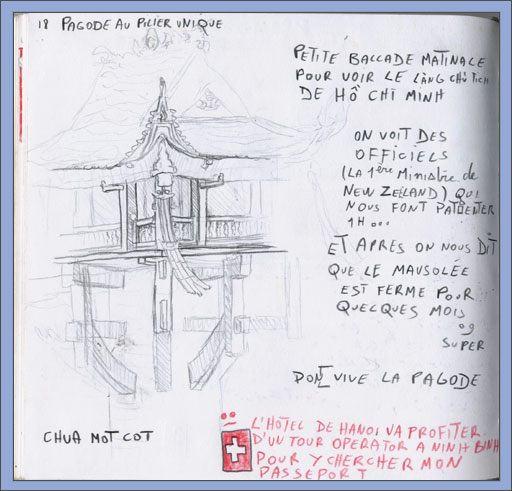 18 PAGODE AU PILIER UNIQUE
PETITE BALLADE MATINALE
POUR VOIR LE LĂNG CHỦ TỊCH
DE HỒ CHI MINH
ON VOIT DES
OFFICIELS
(LA 1ère MINISTRE de
NEW ZEELAND) QUI
NOUS FONT PATIENTER
1H...
ET APRES ON NOUS DIT
QUE LE MAUSOLÉE
EST FERME POUR
QUELQUES MOIS
SUPER
DONC VIVE LA PAGODE
CHUA MOT COT
L'HÔTEL DE HANOI VA PROFITER
D'UN TOUR OPERATOR A NINH BINH
POUR Y CHERCHER MON
PASSEPORT